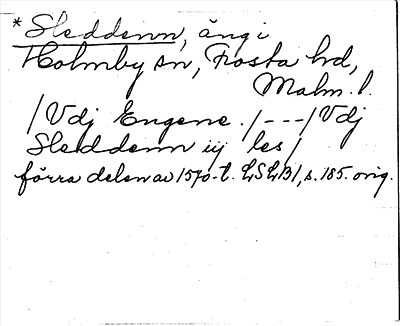 *Sleddenn, äng i
Holmby sn, Frosta hd,
Malm. l.
/Vdj Engene. /---/ Vdj
Sleddenn iij les/
förra delen av 1570-t. LSLB1, s. 185. orig.